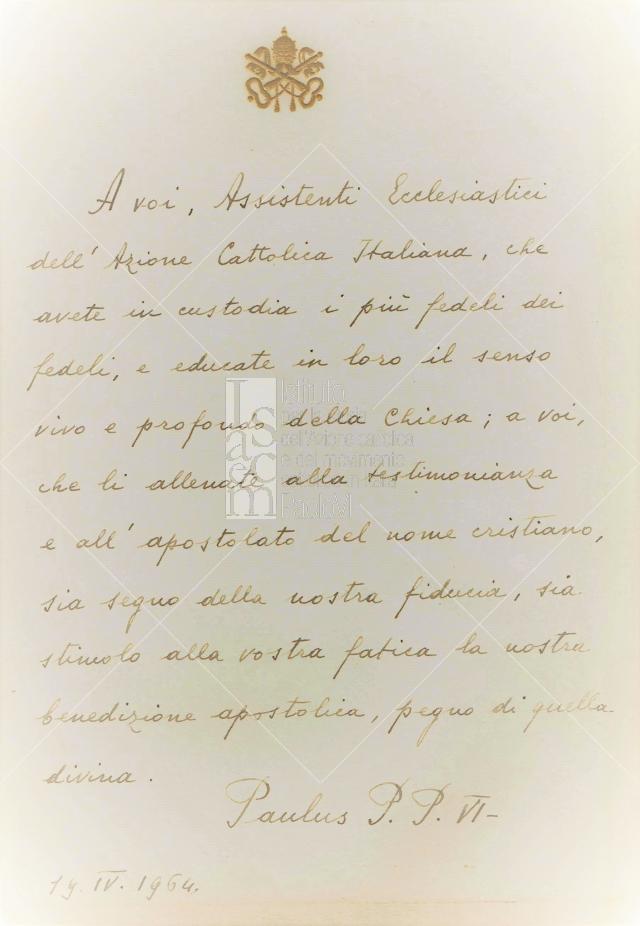 A voi, Assistenti Ecclesiastici
dell' Azione Cattolica Italiana, che
avete in custodia i più fedeli dei
fedeli, e educate in loro il senso
vivo e profondo della Chiesa; a voi,
che li allenate alla testimonianza
e all' apostolato del nome cristiano,
sia segno della nostra fiducia, sia
stimolo alla vostra fatica la nostra
benedizione apostolica, pegno di quella
divina.
Paulus P. P. VI-
IV. 1964.
Isacem
Istituto
dell'Azione cattolica
e del movimento
Paolo VI